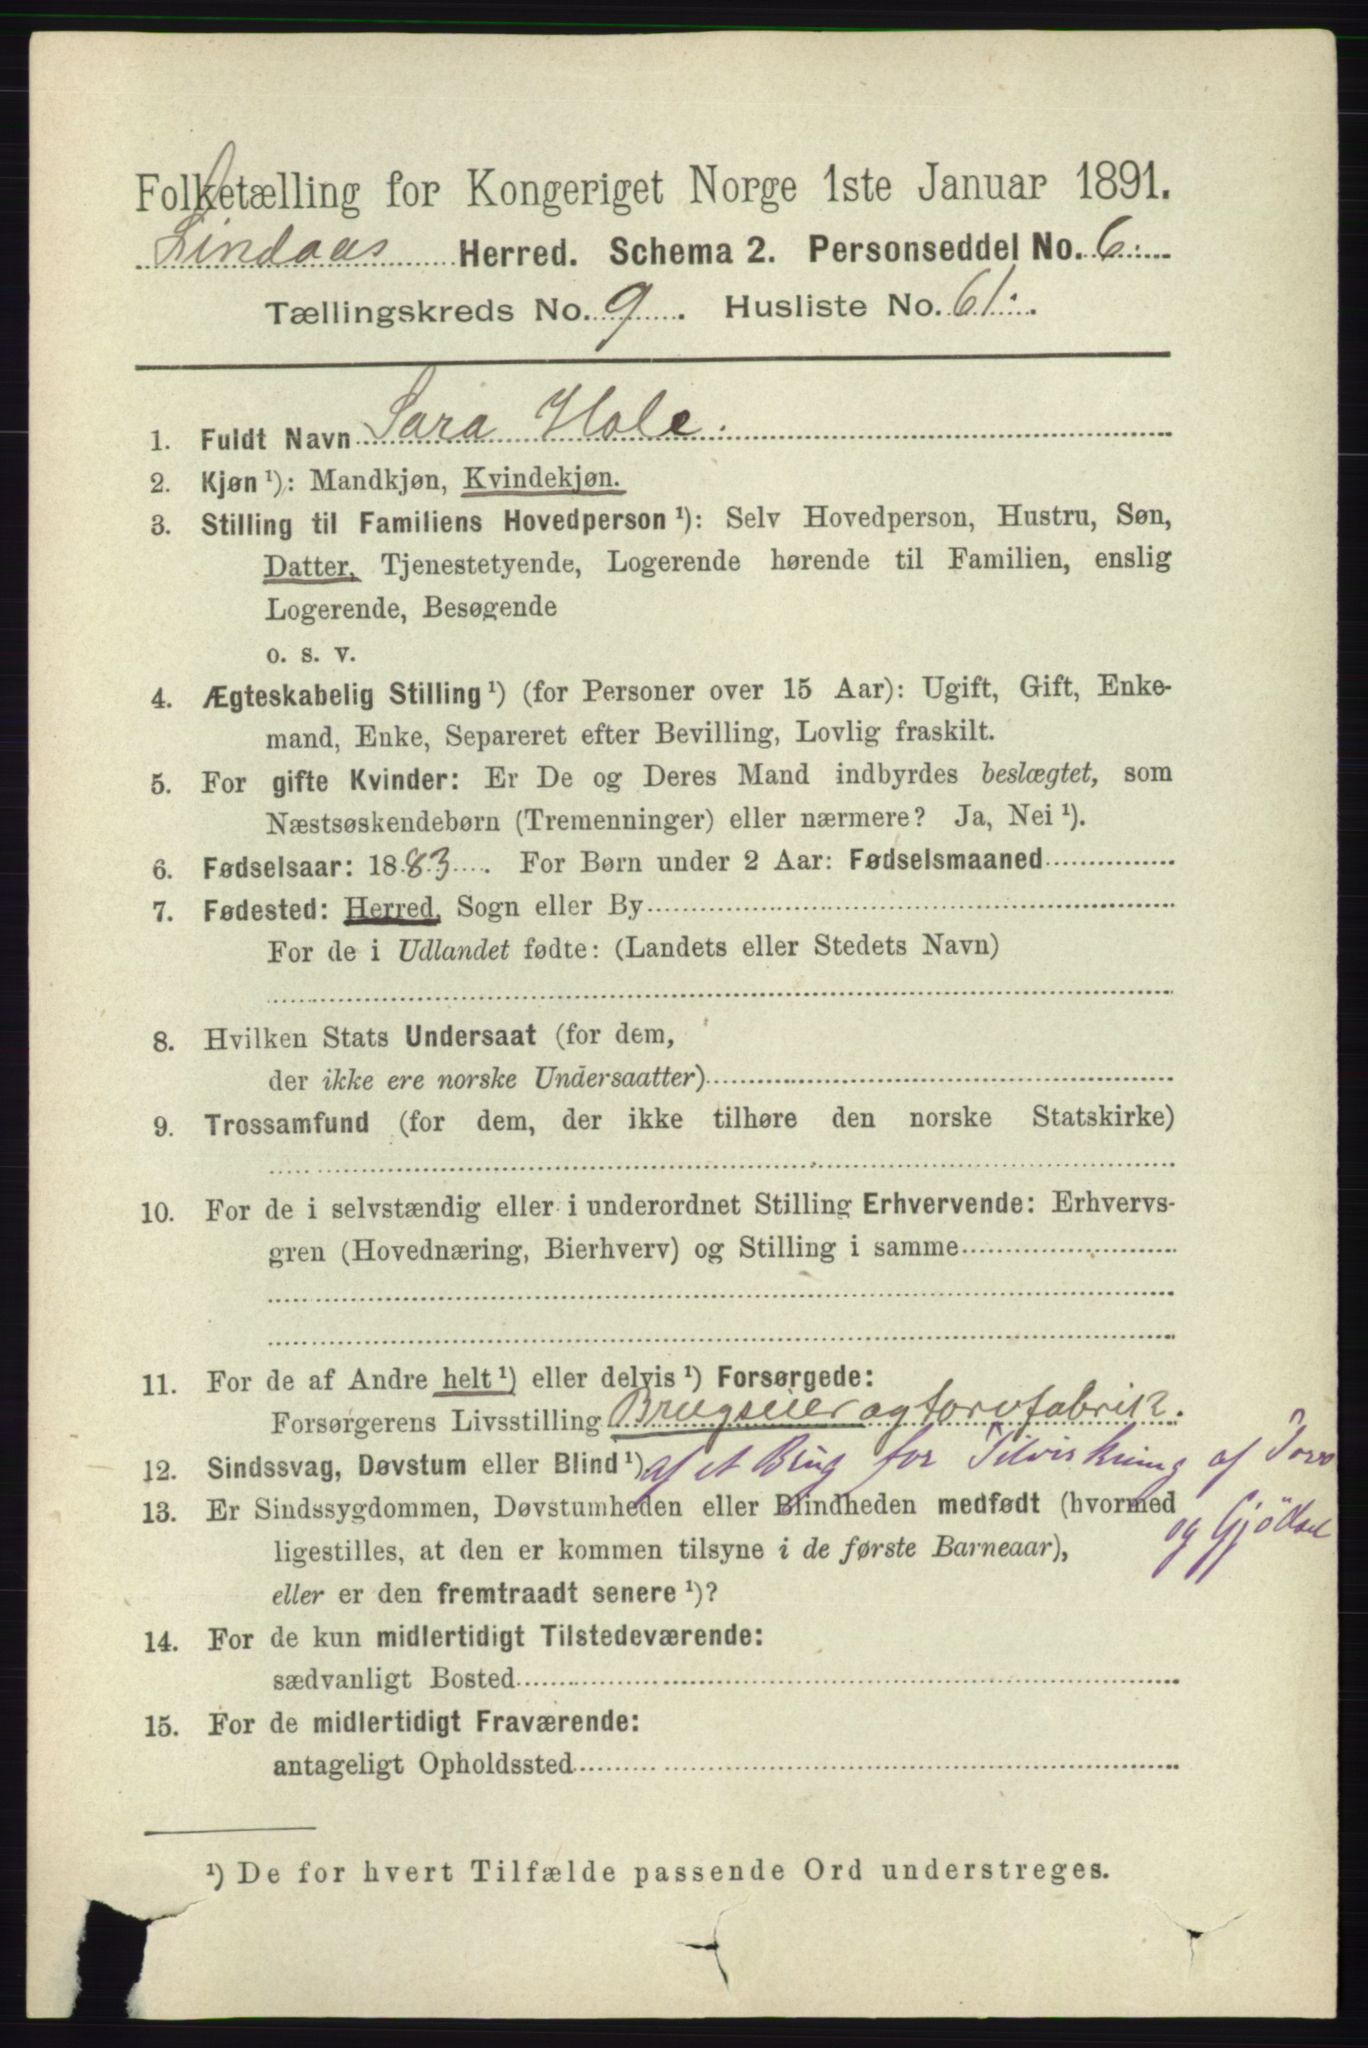 Folketælling for Kongeriget Norge 1ste Januar 1891.
Lindaas Herred. Schema 2. Personseddel No. 6.
Tællingskreds No. 9. Husliste No. 61.
1. Fuldt Navn Sara Hole.
2. Kjøn ¹): Mandkjøn, Kvindekjøn.
3. Stilling til Familiens Hovedperson ¹): Selv Hovedperson, Hustru, Søn,
Datter, Tjenestetyende, Logerende hørende til Familien, enslig
Logerende, Besøgende
o. s. v.
4. Ægteskabelig Stilling ¹) (for Personer over 15 Aar): Ugift, Gift, Enke-
mand, Enke, Separeret efter Bevilling, Lovlig fraskilt.
5. For gifte Kvinder: Er De og Deres Mand indbyrdes beslægtet, som
Næstsøskendebørn (Tremenninger) eller nærmere? Ja, Nei ¹).
6. Fødselsaar: 1883. For Børn under 2 Aar: Fødselsmaaned
7. Fødested: Herred, Sogn eller By
For de i Udlandet fødte: (Landets eller Stedets Navn)
8. Hvilken Stats Undersaat (for dem,
der ikke ere norske Undersaatter)
9. Trossamfund (for dem, der ikke tilhøre den norske Statskirke)
10. For de i selvstændig eller i underordnet Stilling Erhvervende: Erhvervs-
gren (Hovednæring, Bierhverv) og Stilling i samme
11. For de af Andre helt ¹) eller delvis ¹) Forsørgede:
Forsørgerens Livsstilling Brugseier og torvfabrik.
12. Sindssvag, Døvstum eller Blind ¹) af et Brug for Tilvirkning af Torv
13. Er Sindssygdommen, Døvstumheden eller Blindheden medfødt (hvormed
og Gjödsel
ligestilles, at den er kommen tilsyne i de første Barneaar),
eller er den fremtraadt senere ¹)?
14. For de kun midlertidigt Tilstedeværende:
sædvanligt Bosted
15. For de midlertidigt Fraværende:
antageligt Opholdssted
¹) De for hvert Tilfælde passende Ord understreges.